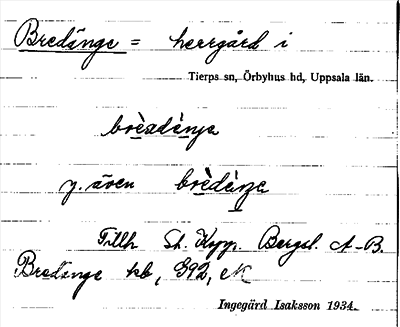 Bredänge = herrgård i
Tierps sn, Örbyhus hd, Uppsala län.
y. även
Tillh St. Kopp. Bergsl. A-B.
Bredänge kb, 392, eK
Ingegärd Isaksson 1934.